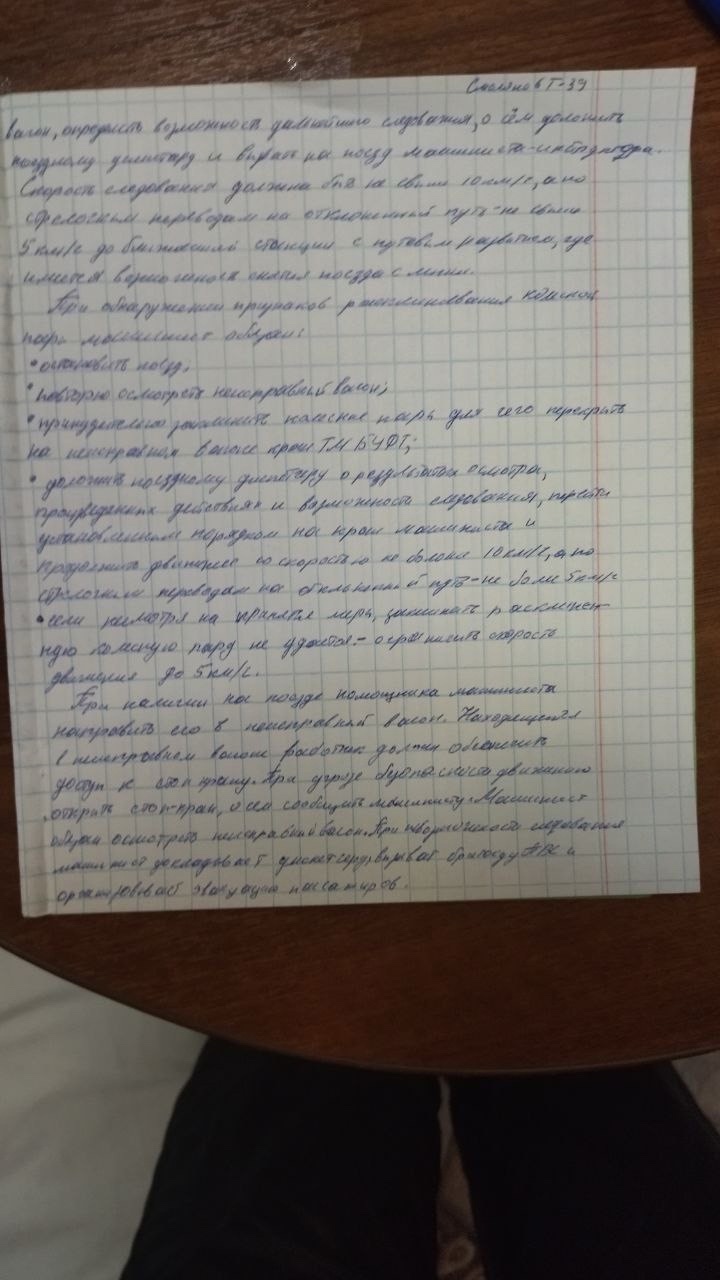 Смолянов Т-39
вагон, определить возможность дальнейшего следования, о чём доложить
поездному диспетчеру и вызвать на поезд машиниста-инструктора.
Скорость следования должна быть не свыше 10 км/ч, а по
стрелочным переводам на отклонённый путь - не свыше
5 км/ч до ближайшей станции с путевым развитием, где
имеется возможность снятия поезда с линии.
При обнаружении признаков расклинивания колёсной
пары машинист обязан:
• остановить поезд;
• повторно осмотреть неисправный вагон;
• принудительно заклинить колесную пару для чего перекрыть
на неисправном вагоне кран ТМ БУФТ;
• доложить поездному диспетчеру о результатах осмотра,
произведенных действиях и возможности следования,
установленным порядком на кран машиниста и
продолжить движение со скоростью не более 10 км/ч, а по
стрелочным переводам на отклонённый путь - не более 5 км/ч
• если несмотря на принятые меры, заклинить расклинен-
ную колесную пару не удаётся - ограничить скорость
движения до 5 км/ч.
При наличии на поезде помощника машиниста
направить его в неисправный вагон. Находящийся
в неисправном вагоне работник должен обеспечить
доступ к стоп крану. При угрозе безопасности движению
открыть стоп-кран, о чем сообщить машинисту. Машинист
обязан осмотреть неисправный вагон. При невозможности следования
машинист докладывает диспетчеру, вызывает бригаду и
организовывает эвакуацию пассажиров.